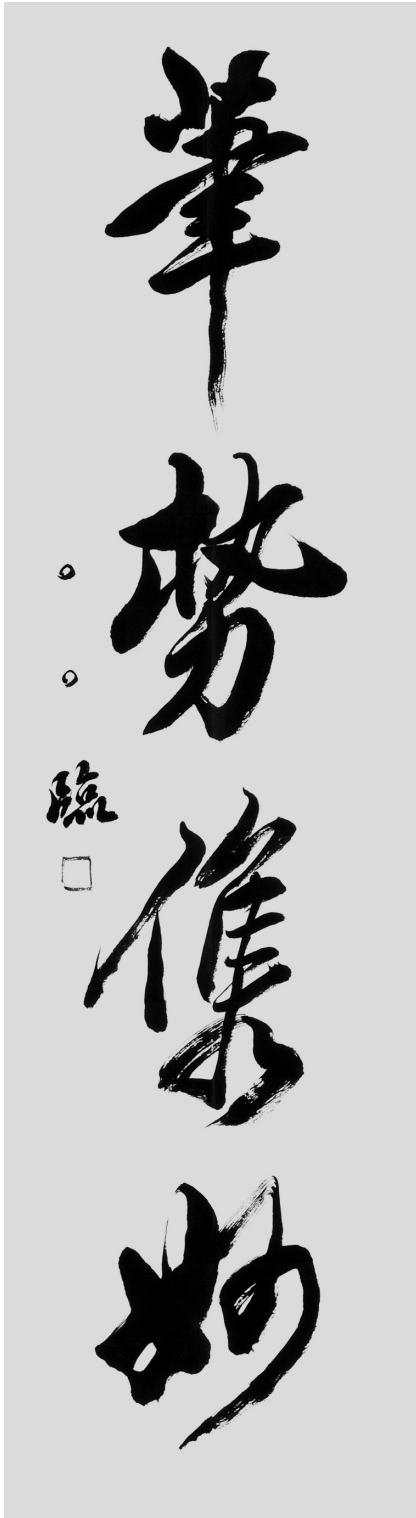 筆勢雋妙
臨